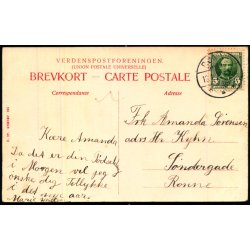 VERDENSPOSTFORENINGEN.
(UNION POSTALE UNIVERSELLE)
BREVKORT — CARTE POSTALE
Correspondance
Adresse
Kære Amanda
Da det er din Fødselsdag
i Morgen vil jeg
ønske dig Tillykke
i det nye aar.
Marie
Frk Amanda Sørensen
adrs Hr Kyhn
Søndergade
Rønne